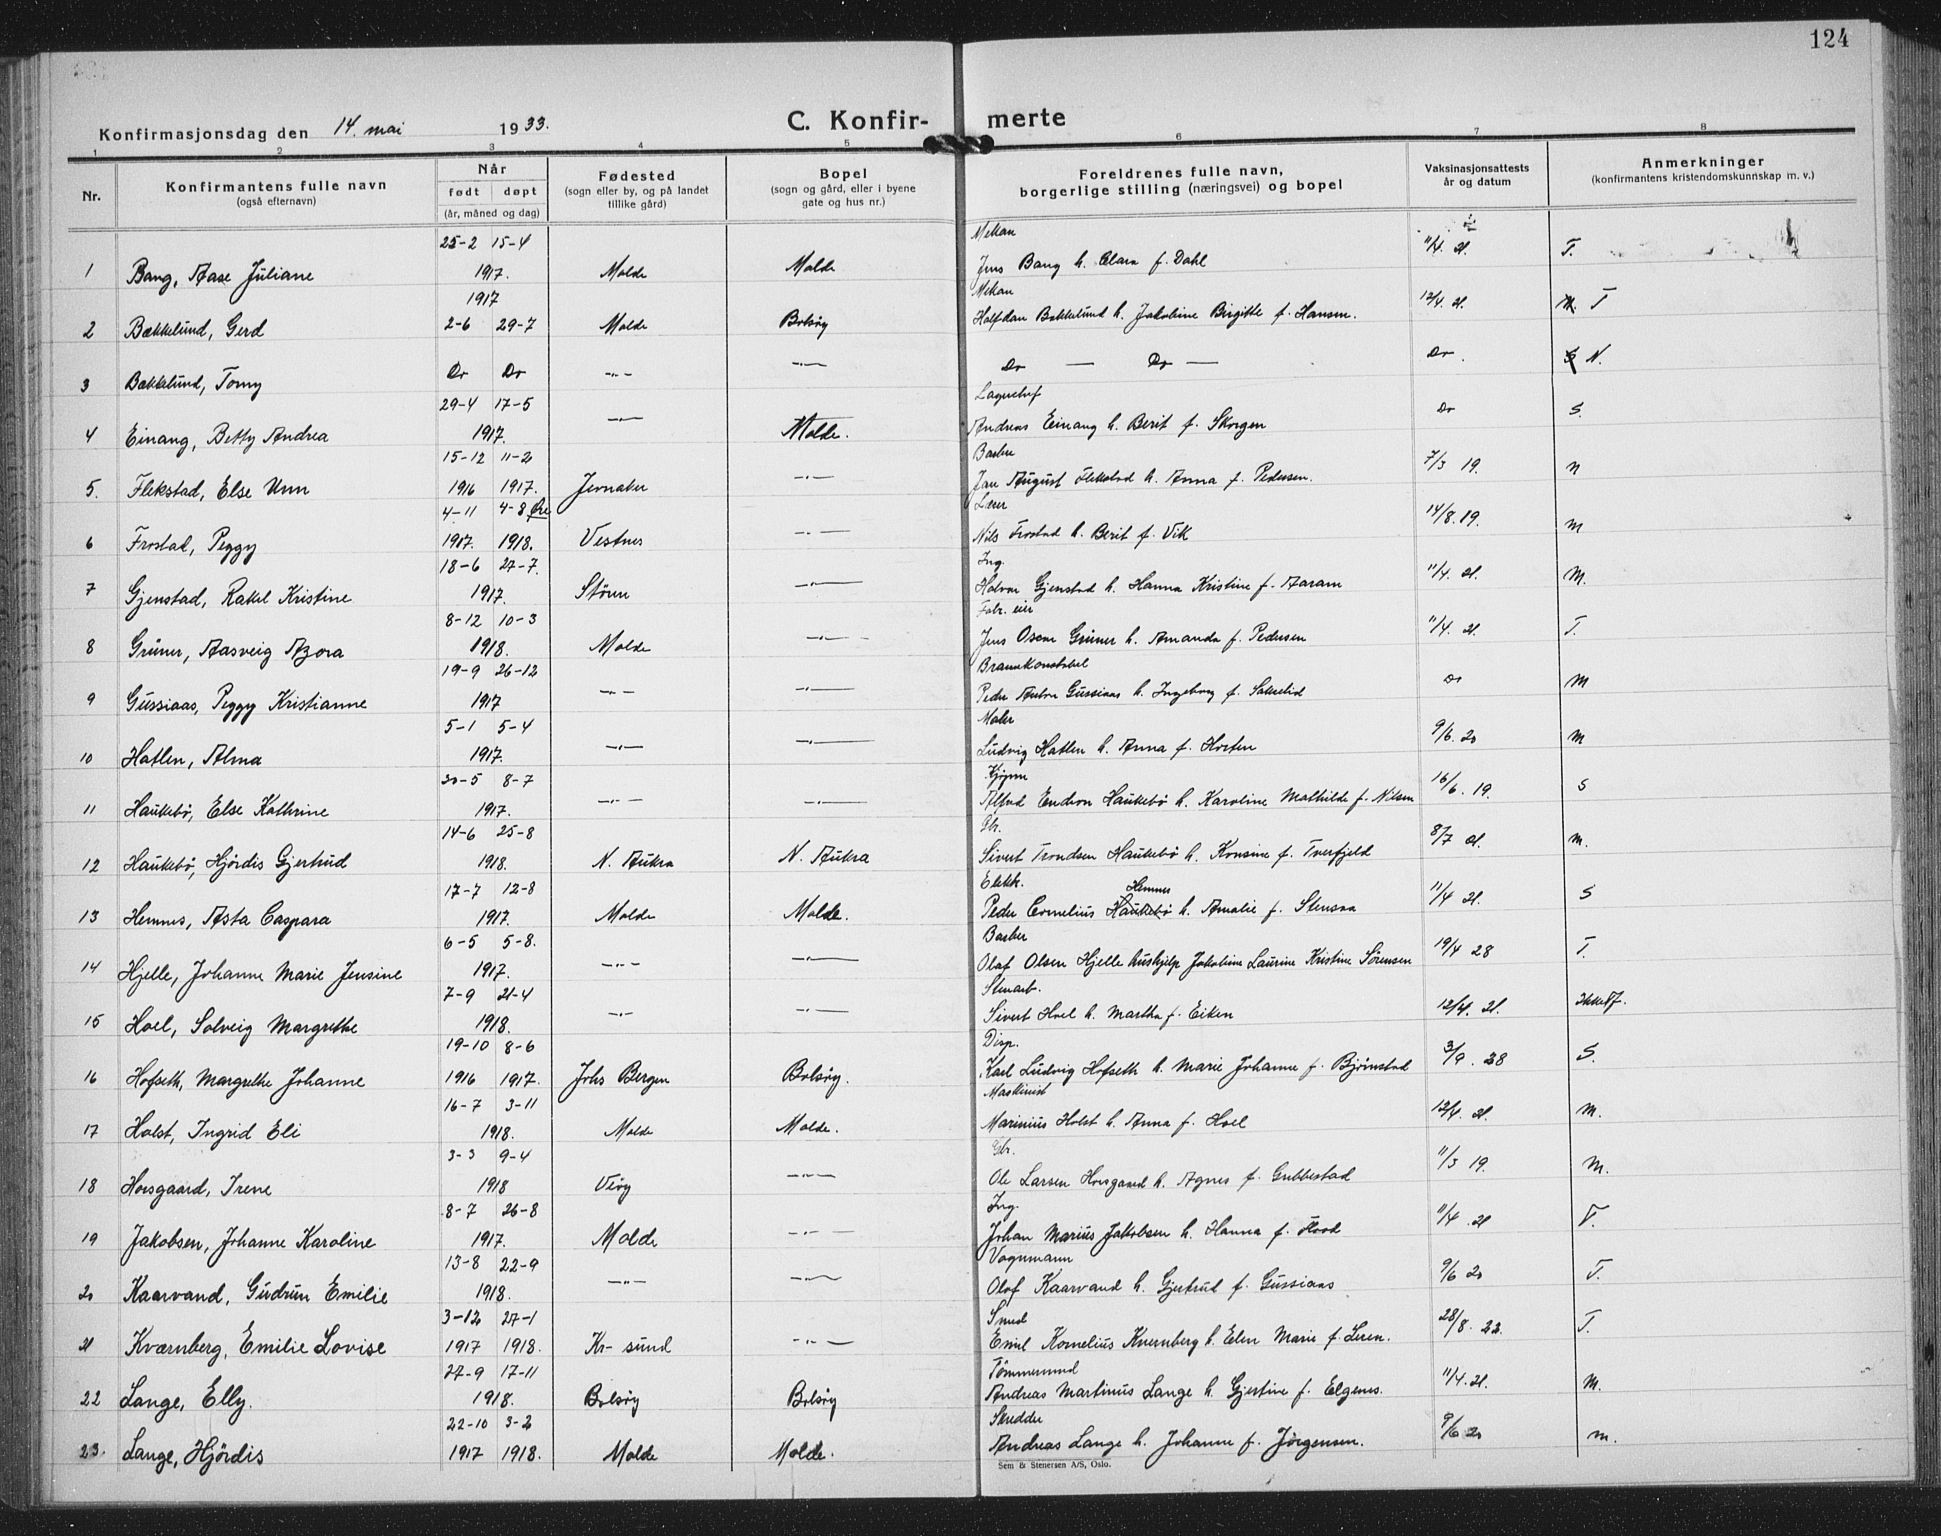 124
C. Konfirmerte
Konfirmasjonsdag den 14. mai 1933.
1 2 3 4 5 6 7 8
Nr.
Konfirmantens fulle navn
(også efternavn)
Når
født døpt
(år, måned og dag)
Fødested
(sogn eller by, og på landet
tillike gård)
Bopel
(sogn og gård, eller i byene
gate og hus nr.)
Foreldrenes fulle navn,
borgerlige stilling (næringsvei) og bopel
Vaksinasjonsattests
år og datum
Anmerkninger
(konfirmantens kristendomskunnskap m. v.)
25-2 15-4 Mekan
1 Bang, Aase Juliane 1917. Molde Molde Jens Bang h. Clara f. Dahl 11/4. 21. T.
1917 Mekan
2 Bækkelund, Gerd 2-6 29-7 Molde Bolsøy Halfdan Bækkelund h. Jakobine Birgitte f. Hansen. 12/4. 21. T
3 Bækkelund, Tomy Do Do —"— —"— Do — Do — Do. N.
29-4 17-5
4 Einang, Betty Andrea 1917. —"— Molde. Andreas Einang h. Berit f. Skorgen Do S.
15-12 11-2 Barber
5. Flekstad, Else Unn 1916 1917. Jevnaker —"— Jan August Flekstad h. Anna f. Pedersen. 7/3 19. n
4-11 4-8 Lærer
6 Frostad, Peggy 1917. 1918. Vestnes —"— Nils Frostad h. Berit f. Vik 14/8. 19. m
18-6 27-7. Ing.
7 Gjenstad, Rakel Kristine 1917. Støren —"— Halvor Gjenstad h. Hanna Kristine f. Aaram 11/4. 21. M.
8-12 10-3 Fabr. eier
8 Grüner, Aasveig Azora 1918. Molde —"— Jens Oscar Grüner h. Amanda f. Pedersen 11/4. 21. T.
19-9 26-12 Brannkonstabel
9 Gussiaas, Peggy Kristianne 1917 —"— —"— Peder Anton Gussiaas h. Ingeborg f. Do M
5-1 5-4 Maler
10 Hatlen, Alma 1917. —"— —"— Ludvig Hatlen h. Anna f. Horten 9/6. 20 M
30-5 8-7
11 Haukebø, Else Kathrine 1917. —"— —"— Haukebø h. Karoline Mathilde f. Nilsen 16/6. 19. S
14-6 25-8 Gbr.
12 Haukebø, Hjørdis Gjertrud 1918. N. Aukra N. Aukra Sivert Trondsen Haukebø h. Konsine f. Tverfjeld 8/7 21. m.
17-7 12-8 Elektr. Hemnes
13 Hemnes, Asta Caspara 1917. Molde Molde. Peder Cornelius Haukebø h. Amalie f. Stensaa 11/4 21. S
6-5 5-8. Barber
14 Hjelle, Johanne Marie Jensine 1917. —"— —"— Olaf Olsen Hjelle hushjelp Jakobine Laurine Kristine Sørensen 19/4 28 T.
7-9 21-4 Stenarb.
15 Hoel, Solveig Margrethe 1918. —"— —"— Sivert Hoel h. Martha f. Eiken 12/4. 21.
19-10 8-6 Disp.
16 Hofseth, Margrethe Johanne 1916 1917. Johs Bergen Bolsøy. Karl Ludvig Hofseth h. Marie Johanne f. Bjørnstad 3/9. 28 S.
16-7 3-11 Maskinist
17 Holst, Ingrid Eli 1918. Molde Molde. Marinius Holst h. Anna f. Hoel 12/4. 21. M.
3-3 9-4 Gbr.
18 Horsgaard, Irene 1918 Veøy —"— Ole Larsen Horsgaard h. Agnes f. Grebbestad 11/3 19. M.
8-7 26-8 Ing.
19 Jakobsen, Johanne Karoline 1917. Molde —"— Johan Marius Jakobsen h. Hanna f. Flood 11/4. 21 T.
13-8 22-9 Vognmann
20 Kaarvand, Gudrun Emilie 1918. —"— —"— Olaf Kaarvand h. Gjertrud f. Gussiaas 9/6 20 T.
3-12 27-1 Smed
21 Kværnberg, Emilie Lovise 1917 1918. Kr-sund —"— Emil Kornelius Kvernberg h. Elen Marie f. Leren. 28/8. 22. T.
27-9 17-11 Tømmermand
22 Lange, Elly. 1918. Bolsøy Bolsøy Andreas Martinus Lange h. Gjertine f. Elgenes. 11/4. 21. M.
22-10 3-2 Skredder
23. Lange, Hjørdis 1917 1918. Molde Molde. Andreas Lange h. Johanne f. Jørgensen. 9/6 20 m.
Sem & Stenersen A/S, Oslo.